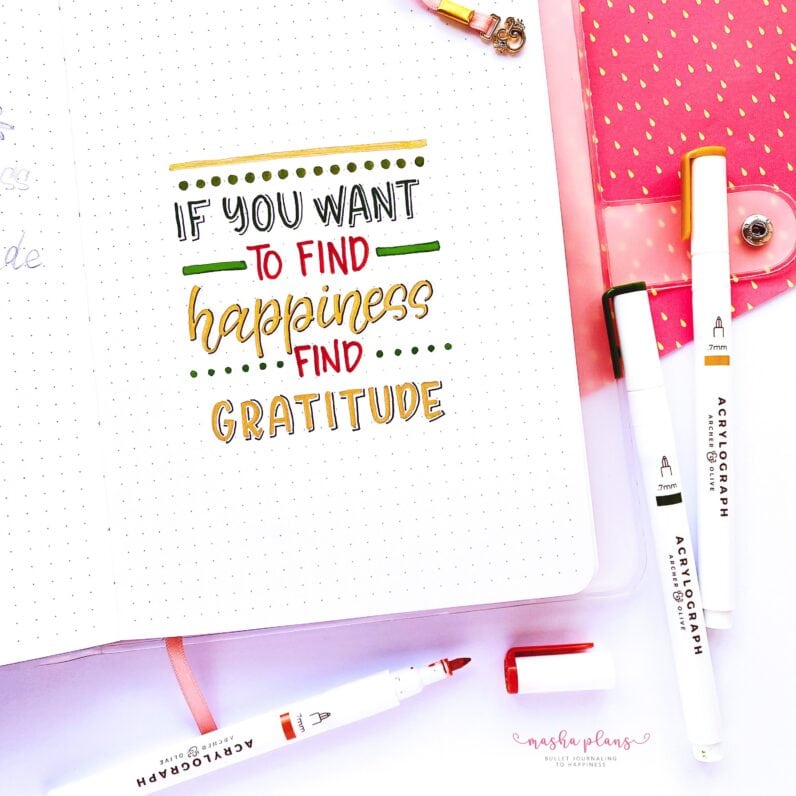 IF YOU WANT
TO FIND
happiness
FIND
GRATITUDE
.7mm
ACRYLOGRAPH
ARCHER & OLIVE
.7mm
ACRYLOGRAPH
ARCHER & OLIVE
.7mm
ACRYLOGRAPH
ARCHER & OLIVE
masha plans
BULLET JOURNALING
TO HAPPINESS